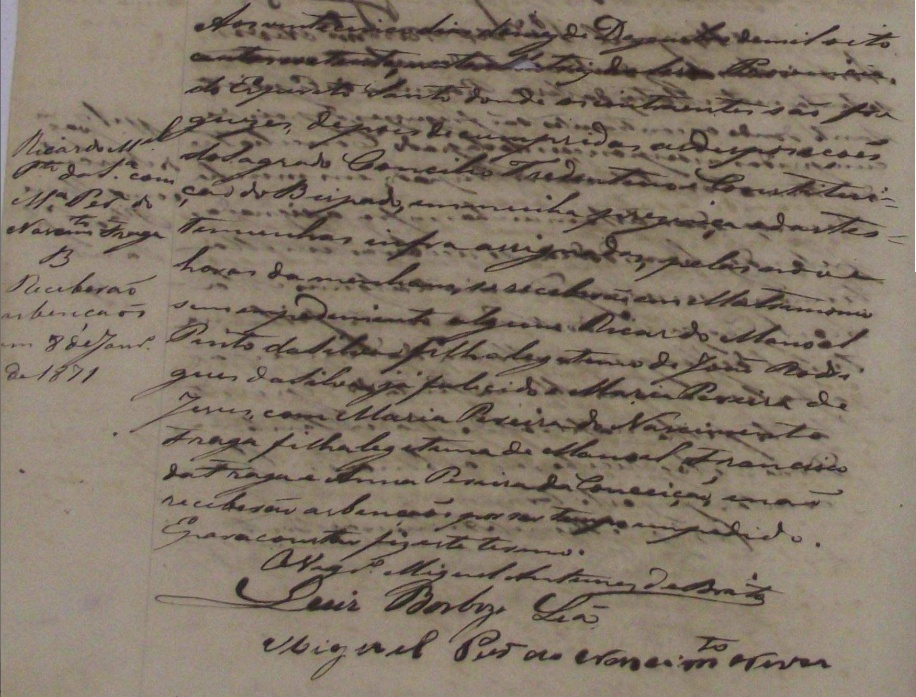 Ricardo M.el
P.to da S.a com
M.a Per.a do
Nascim.to Fraga
B
Receberão
as bencaõs
em 8 de Jan.o
de 1871
Aos vinte dias do mez de Dezembro de mil oito
centos e setenta nesta Matriz de
do Espirito Santo donde os contraentes são fre
guizes, depois de cumpridas as desposicoẽs
do Sagrado Concilio Tredentino e Constitui=
çaõ do Bispado, em minha prezença e das tes=
temunhas infra assignadas, pelas
horas da manhan, se receberão em Matrimonio
sem impedimento algum Ricardo Manoel
Pinto da Silva filho legitimo de João Rodri
gues da Silva já falicido e Maria Pereira de
Jesus, com Maria Pereira do Nascimento
Fraga filha legitima de Manoel Francisco
da Fraga e Anna Pereira da Conceição, e naõ
receberaõ as bencaõs por ser tempo impedido.
E para constar fiz este termo.
O Vigr.o Miguel Antunes de Brito
Luiz Borboza Leã
Miguel Per.a do Nascim.to